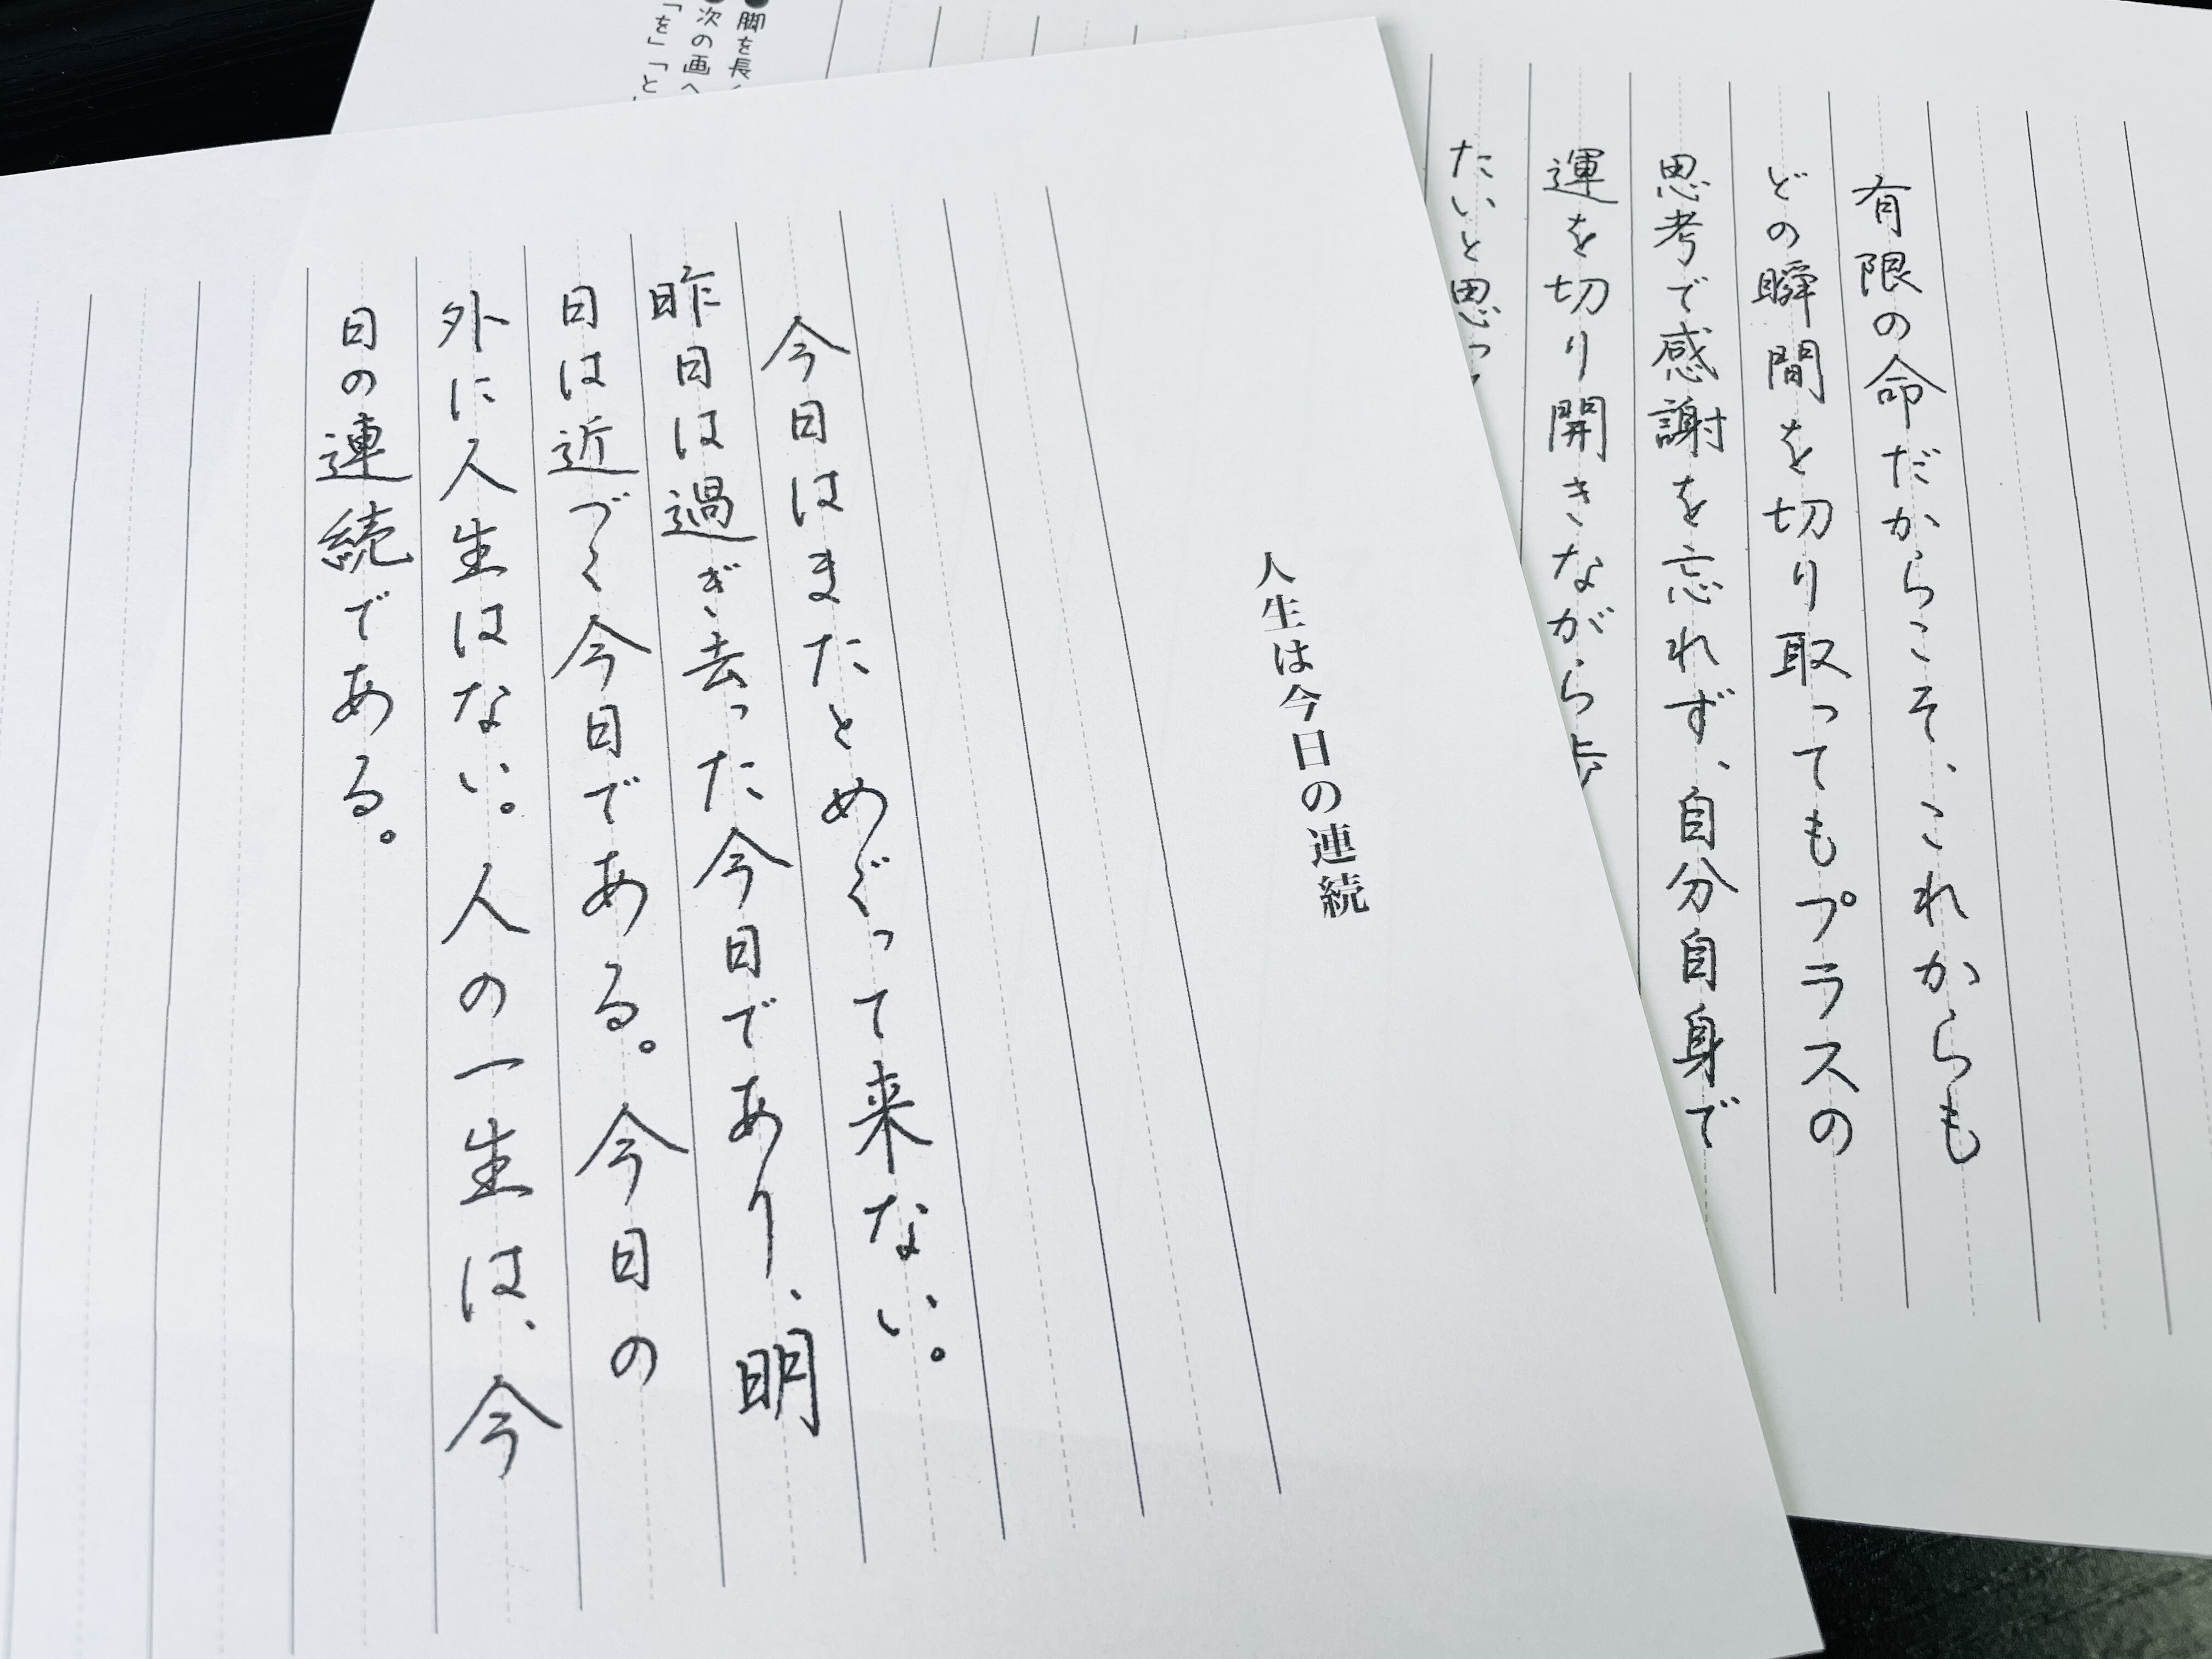 人生は今日の連続
今日はまたとめぐって来ない。
昨日は過ぎ去った今日であり、明
日は近づく今日である。今日の
外に人生はない。人の一生は、今
日の連続である。
有限の命だからこそ、これからも
どの瞬間を切り取ってもプラスの
思考で感謝を忘れず、自分自身で
運を切り開きながら歩
たいと思っ
●脚を長く
●次の画へ
「を」「と